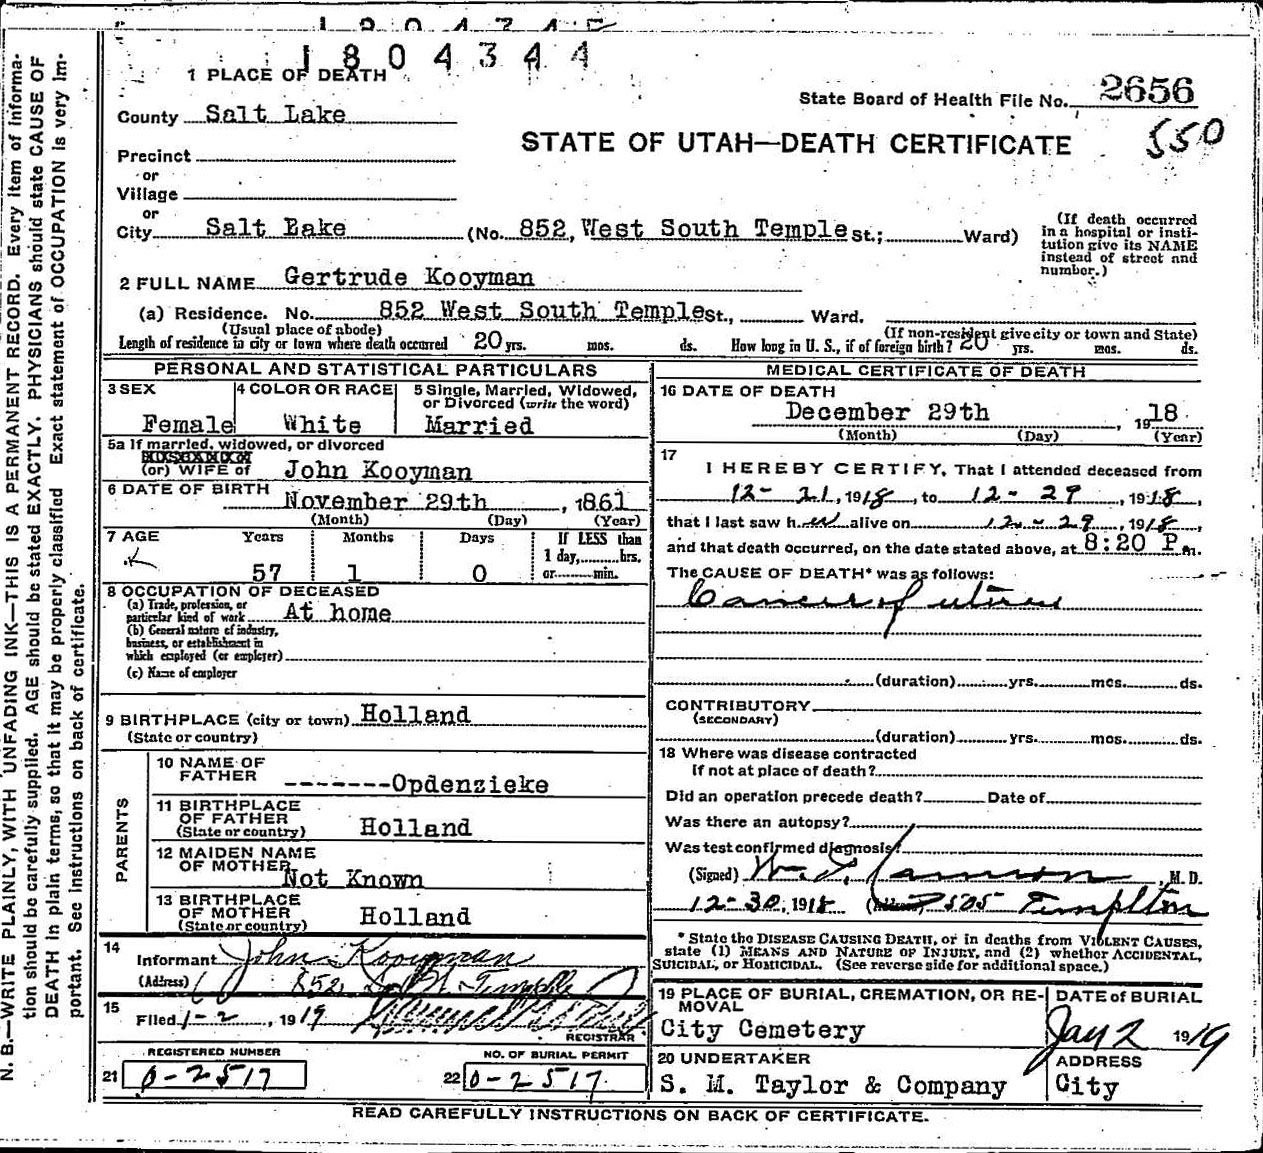 1804344
1 PLACE OF DEATH
State Board of Health File No. 2656
County Salt Lake
550
STATE OF UTAH—DEATH CERTIFICATE
Precinct
or
Village
or
City Salt Bake (No. 852, West South Temple St.; Ward)
(If death occurred in a hospital or insti-
tution give its NAME instead of street and number.)
2 FULL NAME Gertrude Kooyman
(a) Residence. No. 852 West South Temple St., Ward.
(Usual place of abode) (If non-resident give city or town and State)
Length of residence in city or town where death occurred 20 yrs. mos. ds. How long in U. S., if of foreign birth? 20 yrs. mos. ds.
PERSONAL AND STATISTICAL PARTICULARS
3 SEX Female
4 COLOR OR RACE White
5 Single, Married, Widowed, or Divorced (write the word) Married
5a If married, widowed, or divorced
(or) WIFE of John Kooyman
6 DATE OF BIRTH November 29th, 1861
(Month) (Day) (Year)
7 AGE Years Months Days If LESS than
1 day, hrs.
57 1 0 or min.
8 OCCUPATION OF DECEASED
(a) Trade, profession, or
particular kind of work At home
(b) General nature of industry,
business, or establishment in
which employed (or employer)
(c) Name of employer
9 BIRTHPLACE (city or town) Holland
(State or country)
PARENTS
10 NAME OF
FATHER -------Opdenzieke
11 BIRTHPLACE
OF FATHER
(State or country) Holland
12 MAIDEN NAME
OF MOTHER Not Known
13 BIRTHPLACE
OF MOTHER
(State or country) Holland
14
Informant John Kooyman
(Address) 852 So W. Temple
15
Filed 1-2, 1919
REGISTRAR
REGISTERED NUMBER
21 0-2517
NO. OF BURIAL PERMIT
22 0-2517
MEDICAL CERTIFICATE OF DEATH
16 DATE OF DEATH
December 29th, 1918
(Month) (Day) (Year)
17
I HEREBY CERTIFY, That I attended deceased from
12-21, 1918, to 12-29, 1918,
that I last saw her alive on 12-29, 1918,
and that death occurred, on the date stated above, at 8:20 P m.
The CAUSE OF DEATH* was as follows:
Cancer of uterus
(duration) yrs. mos. ds.
CONTRIBUTORY
(SECONDARY)
(duration) yrs. mos. ds.
18 Where was disease contracted
If not at place of death?
Did an operation precede death? Date of
Was there an autopsy?
Was test confirmed diagnosis?
(Signed) , M. D.
12-30, 1918 (Address) 505 Templton
* State the DISEASE CAUSING DEATH, or in deaths from VIOLENT CAUSES,
state (1) MEANS AND NATURE OF INJURY, and (2) whether ACCIDENTAL,
SUICIDAL, or HOMICIDAL. (See reverse side for additional space.)
19 PLACE OF BURIAL, CREMATION, OR RE-
MOVAL
City Cemetery
DATE of BURIAL
Jan 2 1919
20 UNDERTAKER
S. M. Taylor & Company
ADDRESS
City
READ CAREFULLY INSTRUCTIONS ON BACK OF CERTIFICATE.
N. B.—WRITE PLAINLY, WITH UNFADING INK—THIS IS A PERMANENT RECORD. Every item of informa-
tion should be carefully supplied. AGE should be stated EXACTLY. PHYSICIANS should state CAUSE OF
DEATH in plain terms, so that it may be properly classified Exact statement of OCCUPATION is very im-
portant. See instructions on back of certificate.